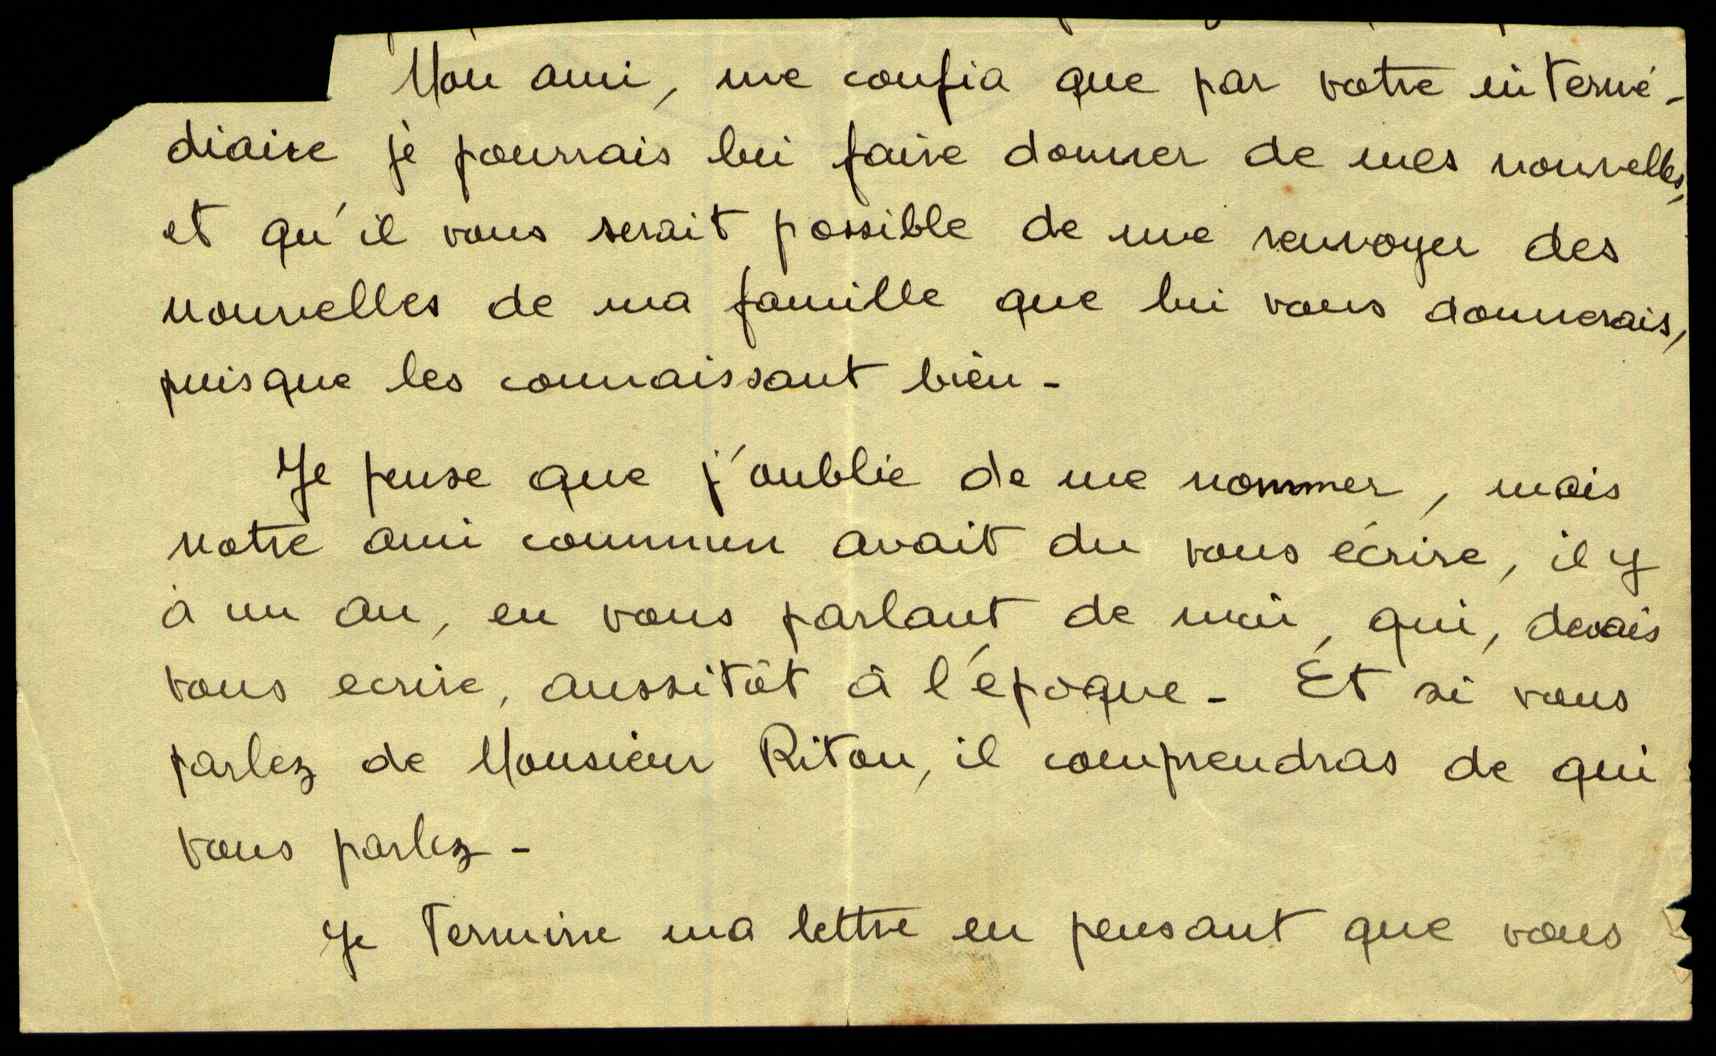 Mon ami, me confia que par votre intermé-
diaire je pourrais lui faire donner de mes nouvelles,
et qu'il vous serait possible de me renvoyer des
nouvelles de ma famille que lui vous donnerais,
puisque les connaissant bien -
Je pense que j'oublie de me nommer, mais
notre ami commun avait du vous écrire, il y
à un an, en vous parlant de moi, qui, devais
vous ecrire, aussitôt à l'époque - Et si vous
parlez de Monsieur Riton, il comprendras de qui
vous parlez -
Je termine ma lettre en pensant que vous